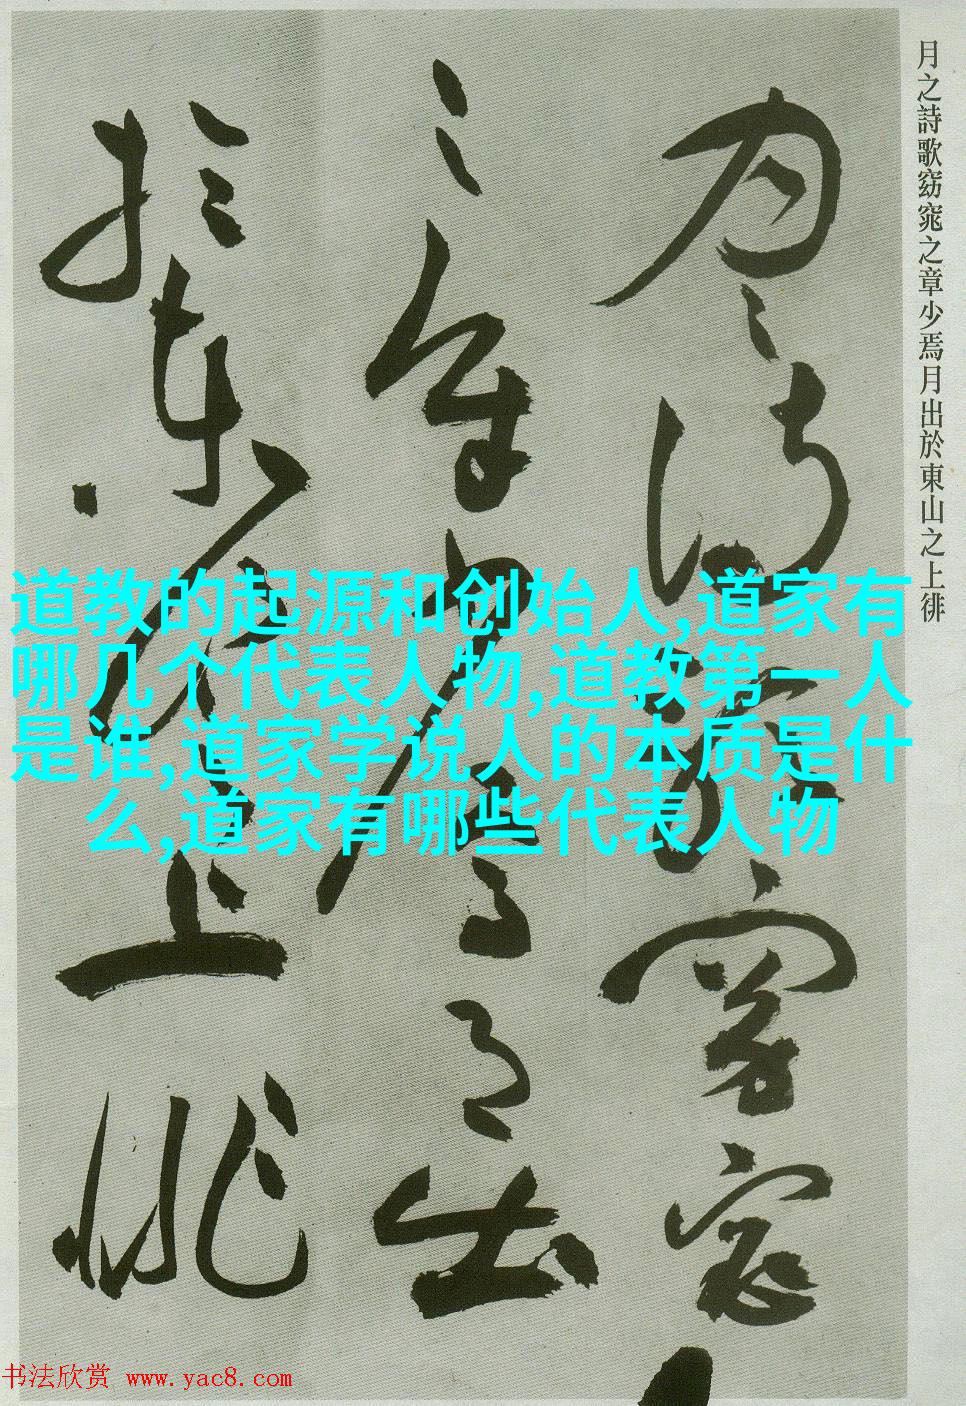 月之詩歌窈窕之章少焉月出於東山之上徘
月之詩歌窈窕
之章少焉月出
於東山之上徘
道教的起源和创始人,道家有
哪几个代表人物,道教第一人
是谁,道家学说人的本质是什
么,道家有哪些代表人物
书法欣赏 www.yac8.com